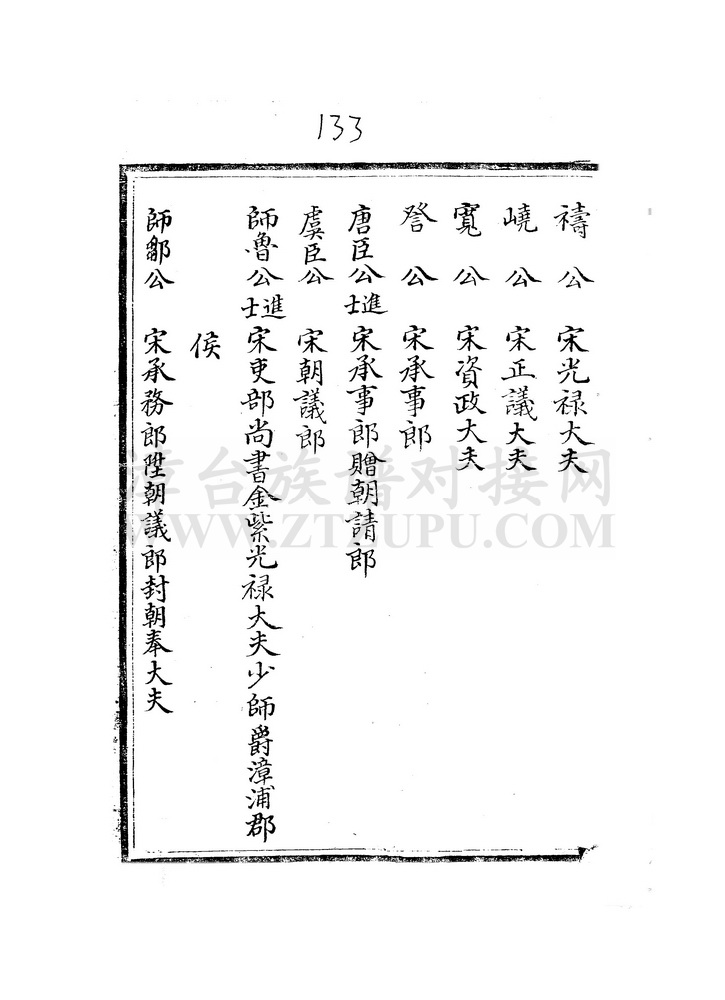 133
禱公 宋光禄大夫
嶢公 宋正議大夫
寬公 宋資政大夫
詧公 宋承事郎
唐臣公進士 宋承事郎贈朝請郎
虞臣公 宋朝議郎
師魯公進士 宋吏部尚書金紫光禄大夫少師爵漳浦郡
侯
師鄒公 宋承務郎陞朝議郎封朝奉大夫
漳台族譜对接网
WWW.ZTZUPU.COM